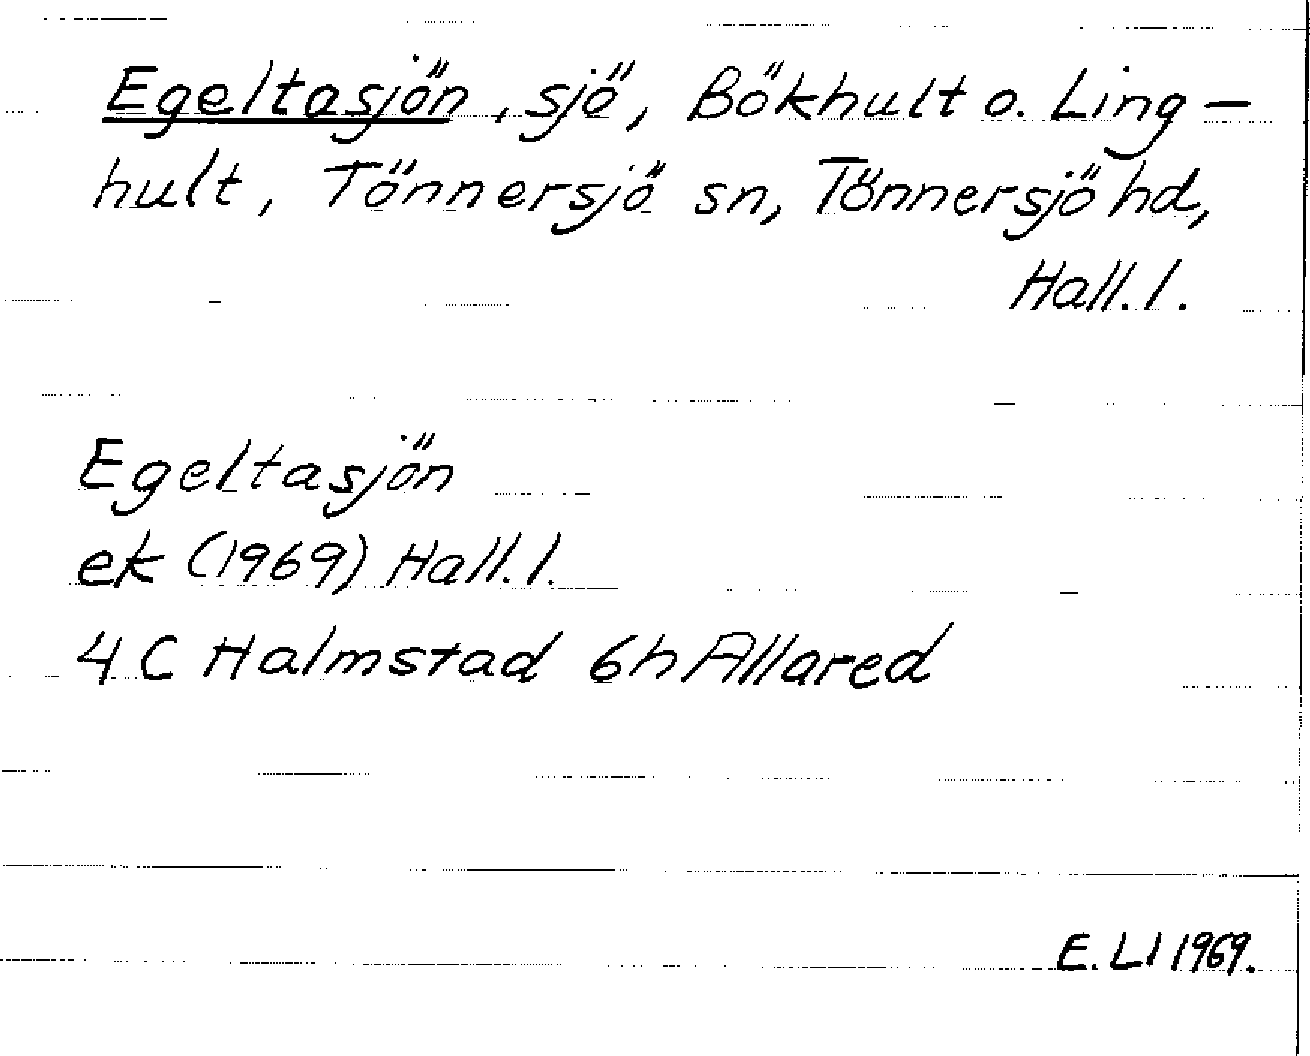 Egeltasjön, sjö, Bökhult o. Ling-
hult, Tönnersjö sn, Tönnersjö hd,
Hall. l.
Egeltasjön
ek (1969) Hall. l.
4 C Halmstad 6h Allared
E. Ll 1969.